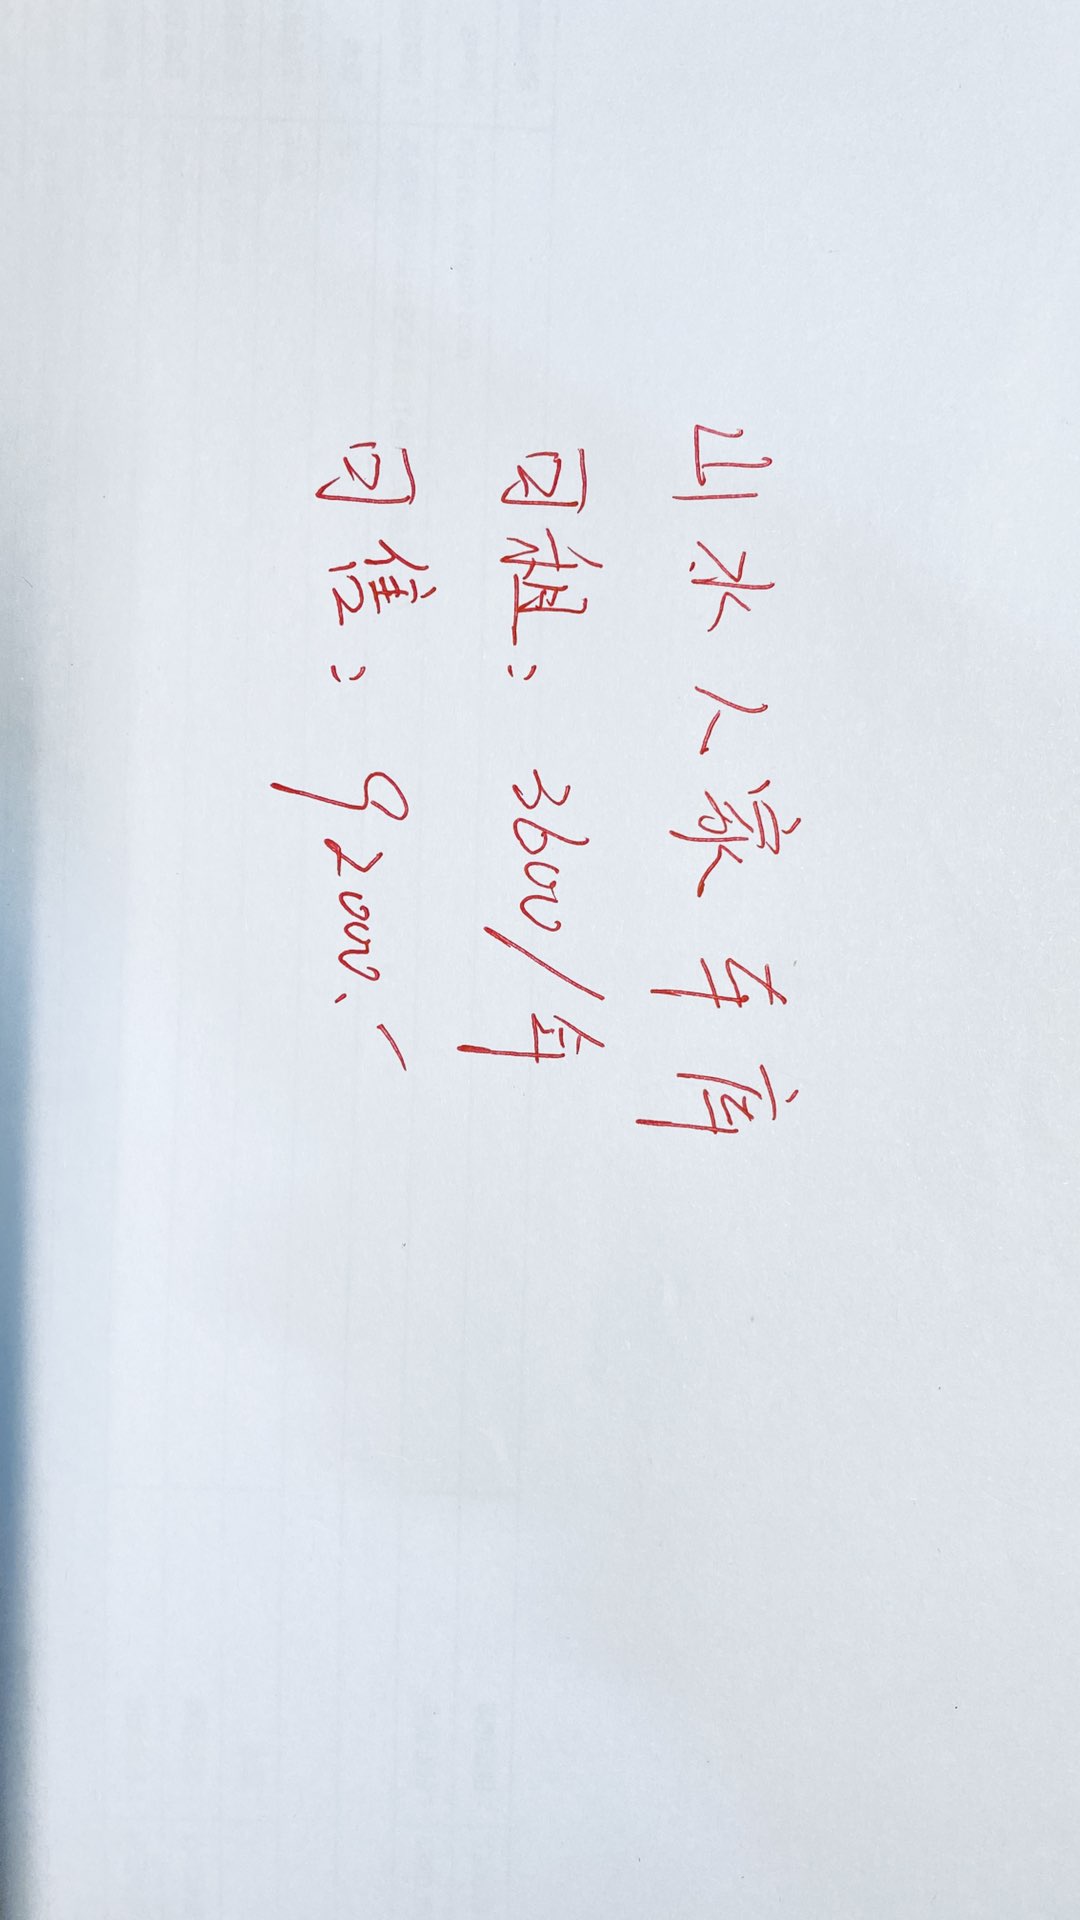 山水人家车库
可租：3600/年
可售：92000.-